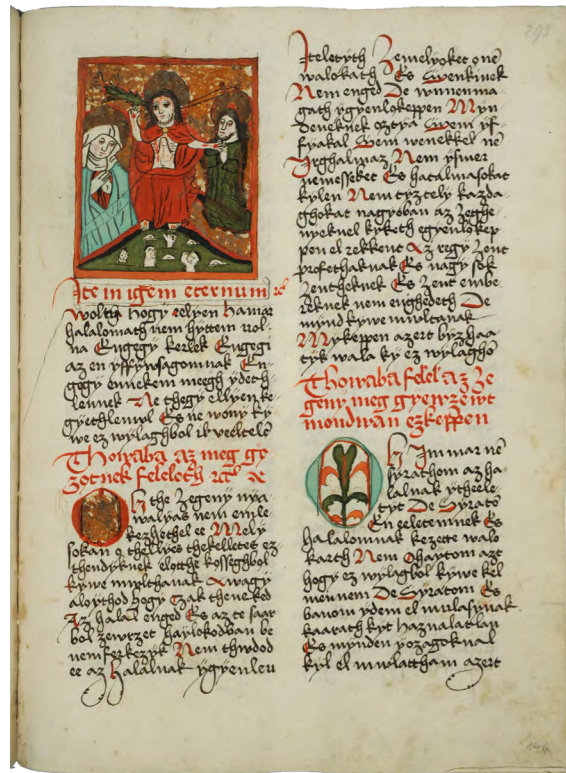 293
Ite in igem eternum
wolth hogy eelyen hamar
halalomath nem hyttem vol-
na Engegy kerlek Engegi
az en yffywsagomnak En-
gegy ennekem meegh ydeth
lennek Ne thegy ellyen ke-
gyethlemyl Es ne wony ky
we ez wylaghbol
Thowaba az meg ge
zotnek feleleth
Oh the zegeny nya-
walyas nem emle-
kezhethel ee Mely
sokan thellyes thekelletes ez-
thendyknek elotthe kosseghbol
kywe mwlthanak Awagy
aloythod hogy Czak theneked
Az halal enged Es az te saar
bol zewrzet haylokodban be
nem ferkezyk Nem thwdod
ee az halalnak ygyenlew
Iteletyth Zemelyoket
walokath Es Senkinek
Nem enged De wnnenma-
gath ygyenlokeppen Myn
deneknek oztya Sem yf-
fyakal Sem wenekkel ne
Irghalmaz Nem ysmer
nemesseket Es hatalmasokat
kylen Nem tyztely kazda-
ghokat nagyoban az zeghe-
nyeknel kyketh egyenlokep
pen el rekkent Az regy zent
profethaknak Es nagy sok
zentheknek Es zent embe-
reknek nem enghedeth De
mynd kywe mwltanak
Mykeppen azert byzhaa-
tyk wala ky ez wylaghon
Thowaba felel az ze
geny meg gyewzewt
mondwan ezkeppen
Oh Immar ne
syrathom az ha-
lalnak ytheele-
tyt De Syrato
En eeletemnek Es
halalomnak kezette walo
karth Nem ohaytom azt
hogy ez wylagbol kywe kel
mennem De Syratom Es
banom ydem el mulasynak
kaarath kyt haznalatlan
Es mynden yozagoknal
kyl el mwlattham azert
146